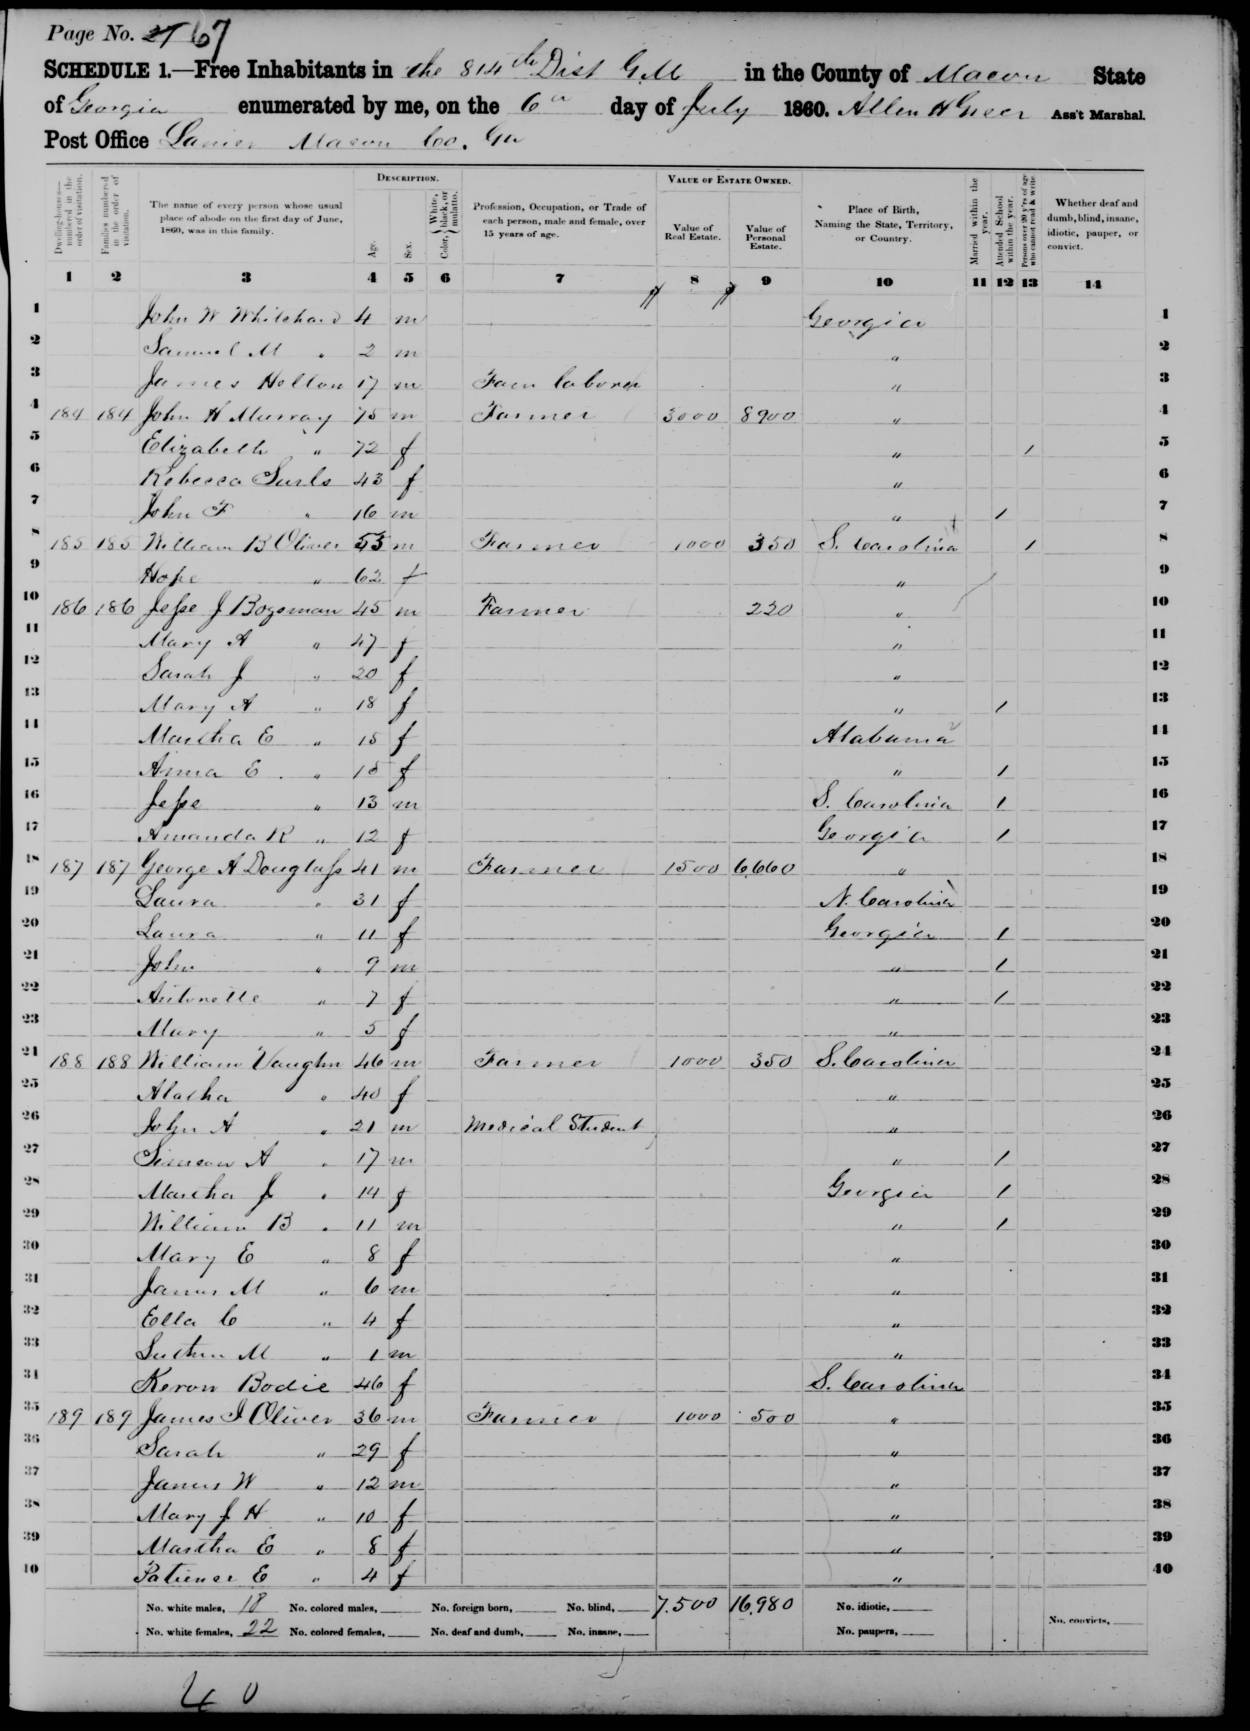 Page No. 27 67
SCHEDULE 1.—Free Inhabitants in the 814th Dist G.M in the County of Macon State
of Georgia enumerated by me, on the 6th day of July 1860. Allen H Greer Ass't Marshal.
Post Office Lanier Macon Co. Ga
DESCRIPTION. VALUE OF ESTATE OWNED.
Dwelling-houses—numbered in the order of visitation. Families numbered in the order of visitation. The name of every person whose usual place of abode on the first day of June, 1860, was in this family. Age. Sex. Color, White, black, or mulatto. Profession, Occupation, or Trade of each person, male and female, over 15 years of age. Value of Real Estate. Value of Personal Estate. Place of Birth, Naming the State, Territory, or Country. Married within the year. Attended School within the year. Persons over 20 y'rs of age who cannot read & write Whether deaf and dumb, blind, insane, idiotic, pauper, or convict.
1 2 3 4 5 6 7 8 9 10 11 12 13 14
1 John W Whitehard 4 m Georgia 1
2 Samuel M " 2 m " 2
3 James Holton 17 m Farm laborer " 3
4 184 184 John H Murray 75 m Farmer 3000 8900 " 4
5 Elizabeth " 72 f " 1 5
6 Rebecca Surls 43 f " 6
7 John F " 16 m " 1 7
8 185 185 William B Oliver 53 m Farmer 1000 350 S. Carolina 1 8
9 Hope " 62 f " 9
10 186 186 Jesse J Bozeman 45 m Farmer 220 " 10
11 Mary A " 47 f " 11
12 Sarah J " 20 f " 12
13 Mary A " 18 f " 1 13
14 Martha E " 15 f Alabama 14
15 Anna E. " 15 f " 1 15
16 Jesse " 13 m S. Carolina 1 16
17 Amanda R " 12 f Georgia 1 17
18 187 187 George A Douglass 41 m Farmer 1500 6,660 " 18
19 Laura " 31 f N. Carolina 19
20 Laura " 11 f Georgia 1 20
21 John " 9 m " 1 21
22 Antonette " 7 f " 1 22
23 Mary " 5 f " 23
24 188 188 William Vaughn 46 m Farmer 1000 350 S. Carolina 24
25 Alatha " 40 f " 25
26 John A " 21 m Medical Student " 26
27 Simeon A " 17 m " 1 27
28 Martha J " 14 f Georgia 1 28
29 William B " 11 m " 1 29
30 Mary E " 8 f " 30
31 James M " 6 m " 31
32 Ella C " 4 f " 32
33 Luther M " 1 m " 33
34 Keron Bodie 46 f S. Carolina 34
35 189 189 James I Oliver 36 m Farmer 1000 500 " 35
36 Sarah " 29 f " 36
37 James W " 12 m " 37
38 Mary J H " 10 f " 38
39 Martha E " 8 f " 39
40 E " 4 f " 40
No. white males, 18 No. colored males, No. foreign born, No. blind, 7.500 16,980 No. idiotic,
No. white females, 22 No. colored females, No. deaf and dumb, No. insane, No. paupers, No. convicts,
40